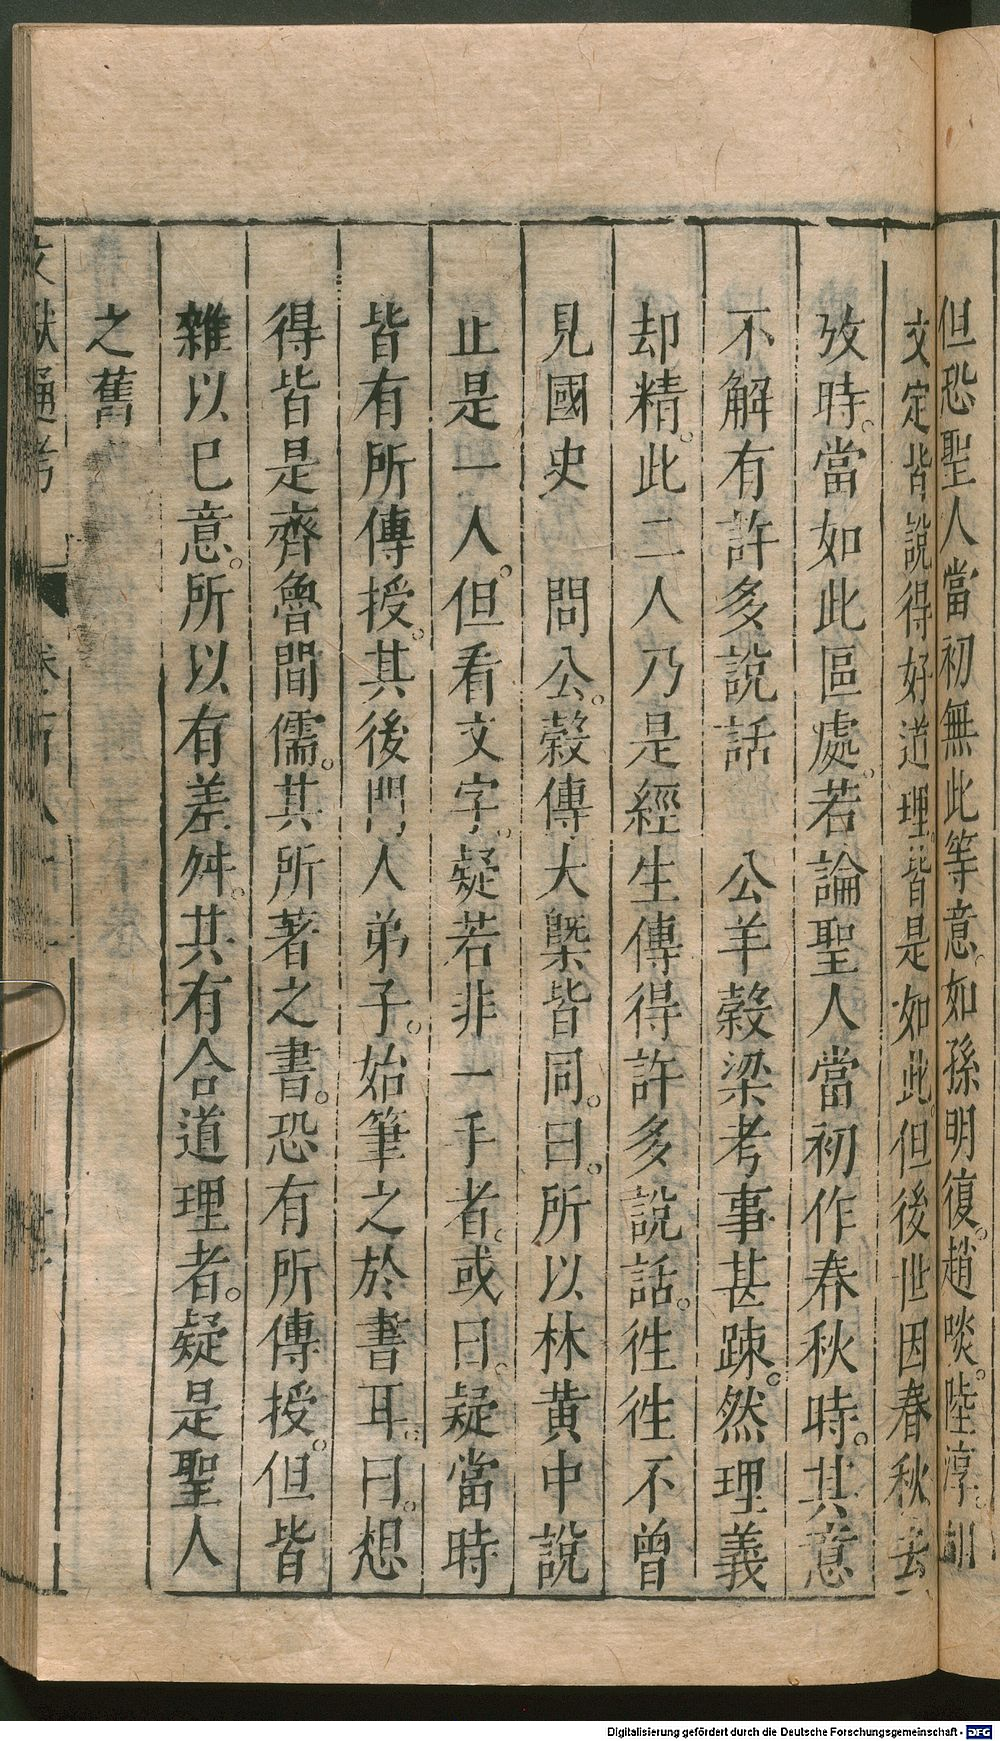 但恐聖人當初無此等意。如孫明復。趙啖。陸淳。胡
文定皆說得好道理。皆是如此。但後世因春秋去
攷時。當如此區處。若論聖人當初作春秋時。其意
不解有許多說話　公羊穀梁考事甚踈。然理義
却精。此二人乃是經生傳得許多說話。徃徃不曾
見國史　問公。穀傳大槩皆同。曰。所以林黃中說
止是一人。但看文字。疑若非一手者。或曰。疑當時
皆有所傳授。其後門人弟子。始筆之於書耳。曰。想
得皆是齊魯間儒。其所著之書。恐有所傳授。但皆
雜以己意。所以有差舛。其有合道理者。疑是聖人
之舊
文獻通考　卷一百八十二
Digitalisierung gefördert durch die Deutsche Forschungsgemeinschaft - DFG